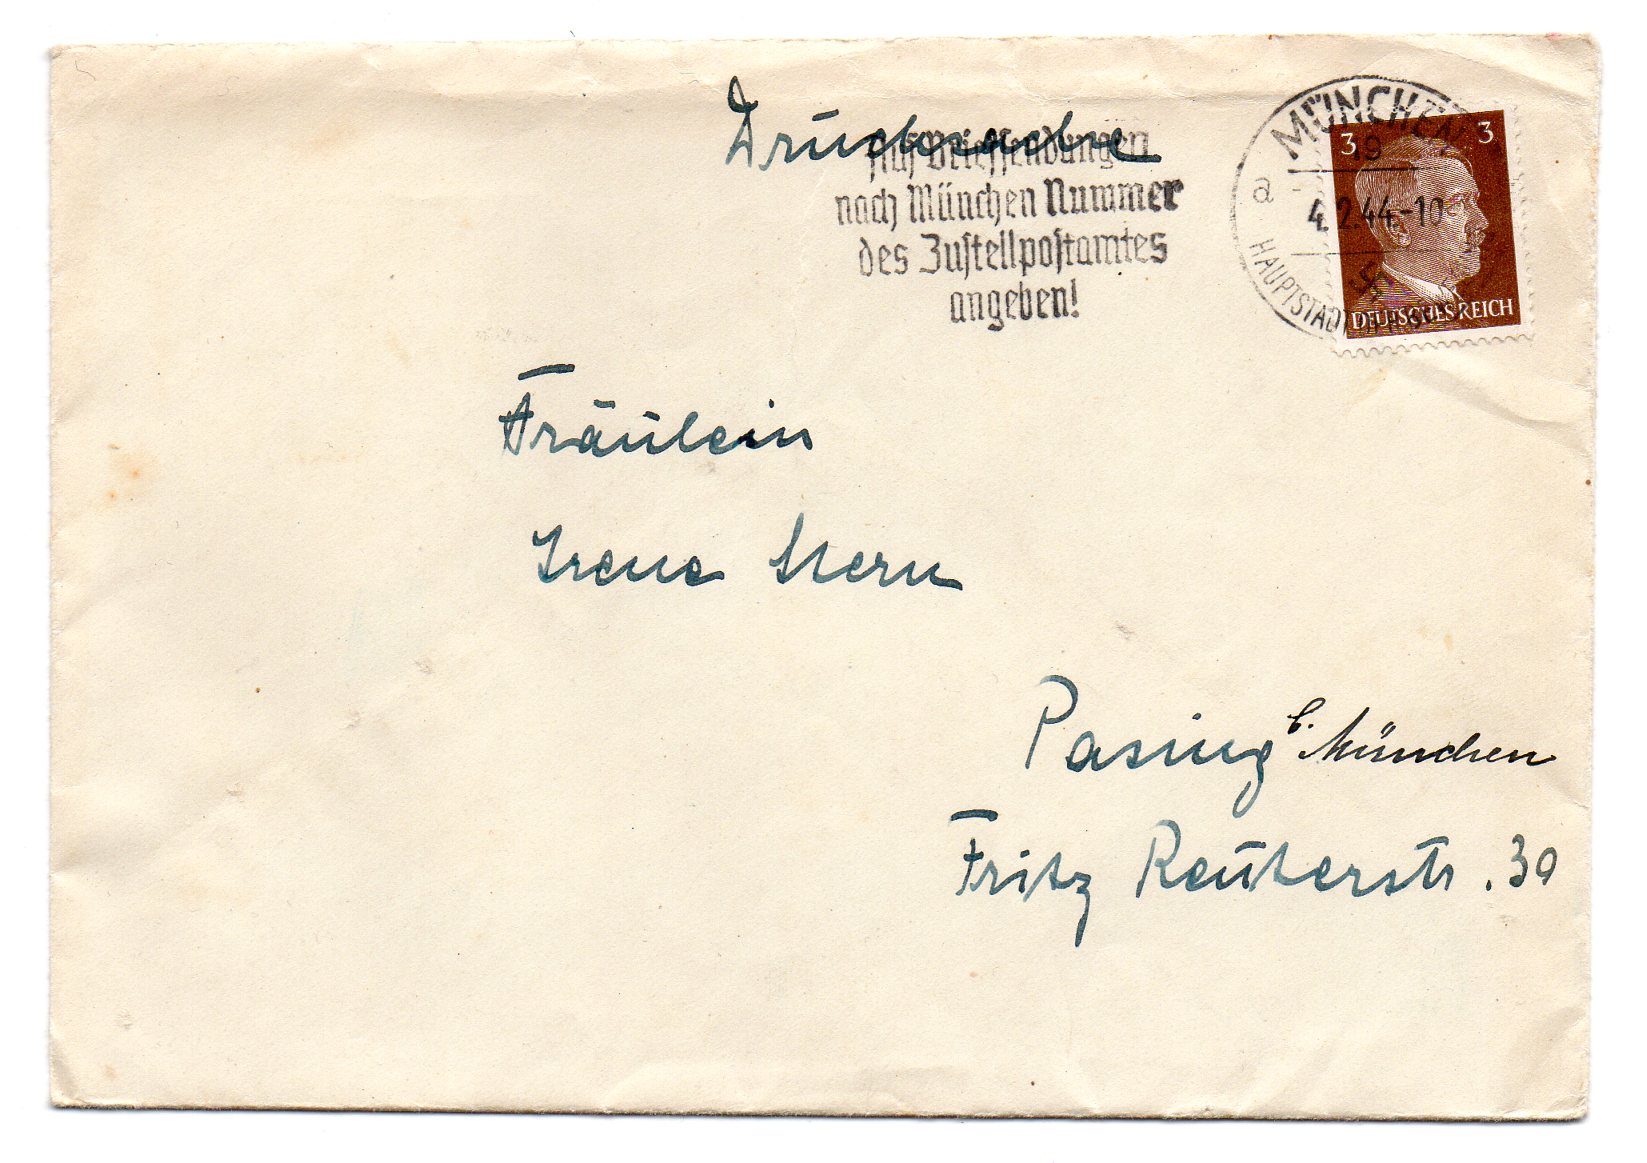 Drucksache
Auf Briefsendungen
nach München Nummer
des Zustellpostamtes
angeben!
MÜNCHEN
19
a
4.2.44.-10
HAUPTSTADT
3 3
DEUTSCHES REICH
Fräulein
Irene Stern
Pasing b. München
Fritz Reuterstr. 30